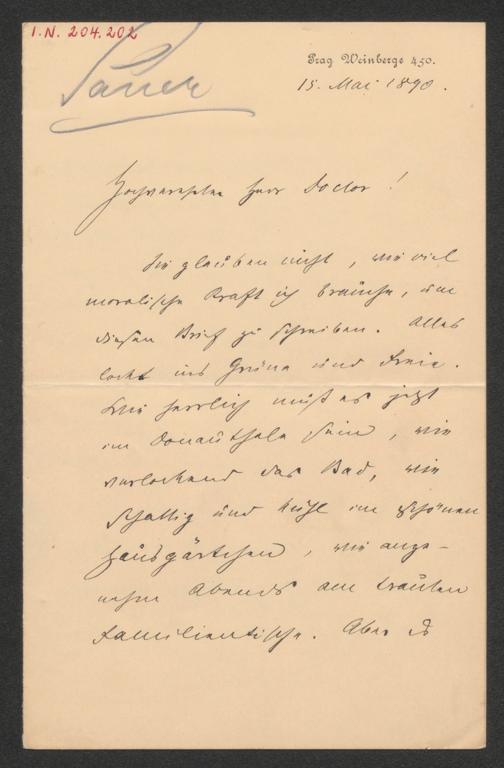 I.N. 204.202
Sauer
Prag Weinberge 450.
15. Mai 1890.
Hochverehrter Herr Doctor!
Sie glauben nicht, wie viel
moralische Kraft ich brauche, um
diesen Brief zu schreiben. Alles
lockt ins Grüne und Freie.
Wie herrlich muß es jetzt
im Donauthale sein, wie
verlockend das Bad, wie
schattig und kühl im schönen
Hausgärtchen, wie ange-
nehm Abends am trauten
Familientische. Aber es